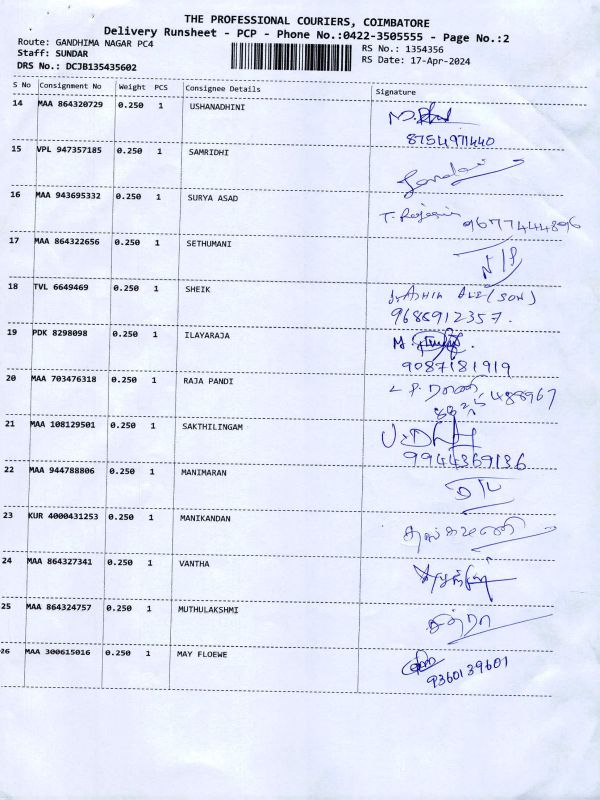 THE PROFESSIONAL COURIERS, COIMBATORE
Delivery Runsheet - PCP - Phone No.:0422-3505555 - Page No.:2
Route: GANDHIMA NAGAR PC4 RS No.: 1354356
Staff: SUNDAR RS Date: 17-Apr-2024
DRS No.: DCJB135435602
S No Consignment No Weight PCS Consignee Details Signature
14 MAA 864320729 0.250 1 USHANADHINI
8754971440
15 VPL 947357185 0.250 1 SAMRIDHI
16 MAA 943695332 0.250 1 SURYA ASAD
9677444896
17 MAA 864322656 0.250 1 SETHUMANI
18 TVL 6649469 0.250 1 SHEIK
(SON)
9688912357.
19 PDK 8298098 0.250 1 ILAYARAJA
9087181919
20 MAA 703476318 0.250 1 RAJA PANDI
21 MAA 108129501 0.250 1 SAKTHILINGAM
9944369136
22 MAA 944788806 0.250 1 MANIMARAN
23 KUR 4000431253 0.250 1 MANIKANDAN
24 MAA 864327341 0.250 1 VANTHA
25 MAA 864324757 0.250 1 MUTHULAKSHMI
26 MAA 300615016 0.250 1 MAY FLOEWE
9360139601